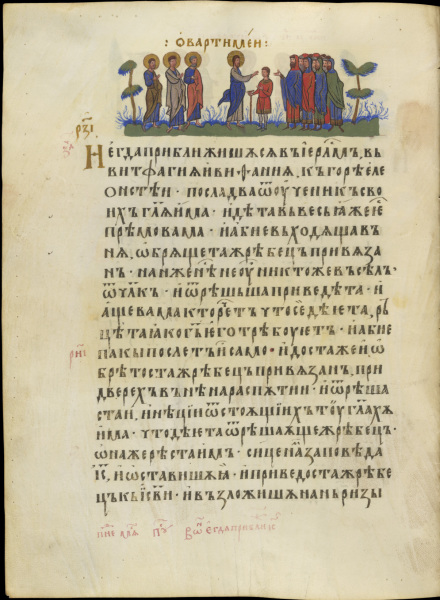 : О ВАРТИМЕИ :
РЗ҃І
И егда приближишѧсѧ въ іер҃лмъ, въ
витфагиѧ и виѳаниѧ, къ горѣ еле
ѡнстѣи · посла два ѿ оученикъ сво
ихъ гл҃ѧ има · идѣта въ весь ꙗже е҃
прѣмо вама · и абие въходѧща в
нѧ, ѡбрѧщета жрѣбець привѧза
нъ · на нже нѣ не оу никтоже въсѣлъ ·
ѿ чл҃къ · и ѿрѣшьша приведѣта · и
аще вама кто реть что се дѣета, рь
цѣта ꙗко г҃ь его трѣбоуетъ · и абие
пакы послеть и сѣмо · идостаже и ѡ
брѣтоста жрѣбець привѧзанъ, при
дверехъ вънѣ на распѫтии · и ѿрѣша
ста и · и нѣции ѿ стоѧщіихъ тоу гл҃ахѫ
има · что дѣета ѿрѣшаѧща жрѣбець ·
ѡна же рѣста имъ · заповѣда
іс҃, и ѡставишѧ ꙗ · и приведоста жрѣбе
ць къ іс҃ви · и възложишѧ на нь ризы